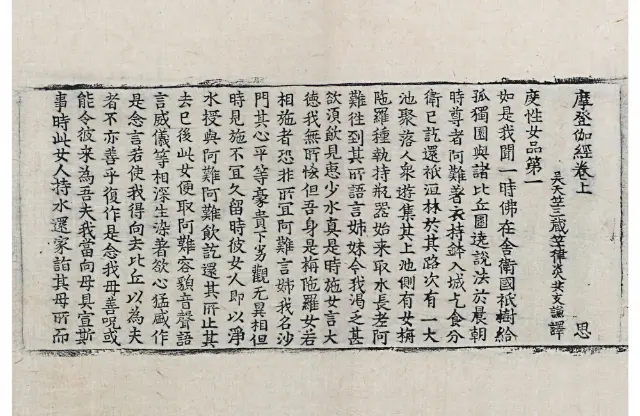 摩登伽經卷上
吳天竺三藏竺律炎共支謙譯
思
度性女品第一
如是我聞一時佛在舍衛國祇樹給
孤獨園與諸比丘圍遶說法於晨朝
時尊者阿難著衣持鉢入城乞食分
衛已訖還祇洹林於其路次有一大
池聚落人衆遊集其上池側有女栴
陁羅種執持瓶器始來取水長老阿
難往到其所語言姊妹令我渴乏甚
欲湏飲見惠少水真是時施女言大
德我無所悋但吾身是栴陁羅女若
相施者恐非所宜阿難言姊我名沙
門其心平等豪貴下劣觀无異相但
時見施不宜久留時彼女人即以淨
水授與阿難阿難飲訖還其所止其
去已後此女便取阿難容貌音聲語
言威儀等相深生染著欲心猛盛作
是念言若使我得向去比丘以為夫
者不亦善乎復作是念我母善呪或
能令彼来為吾夫我當向母具宣斯
事時此女人持水還家詣其母所而